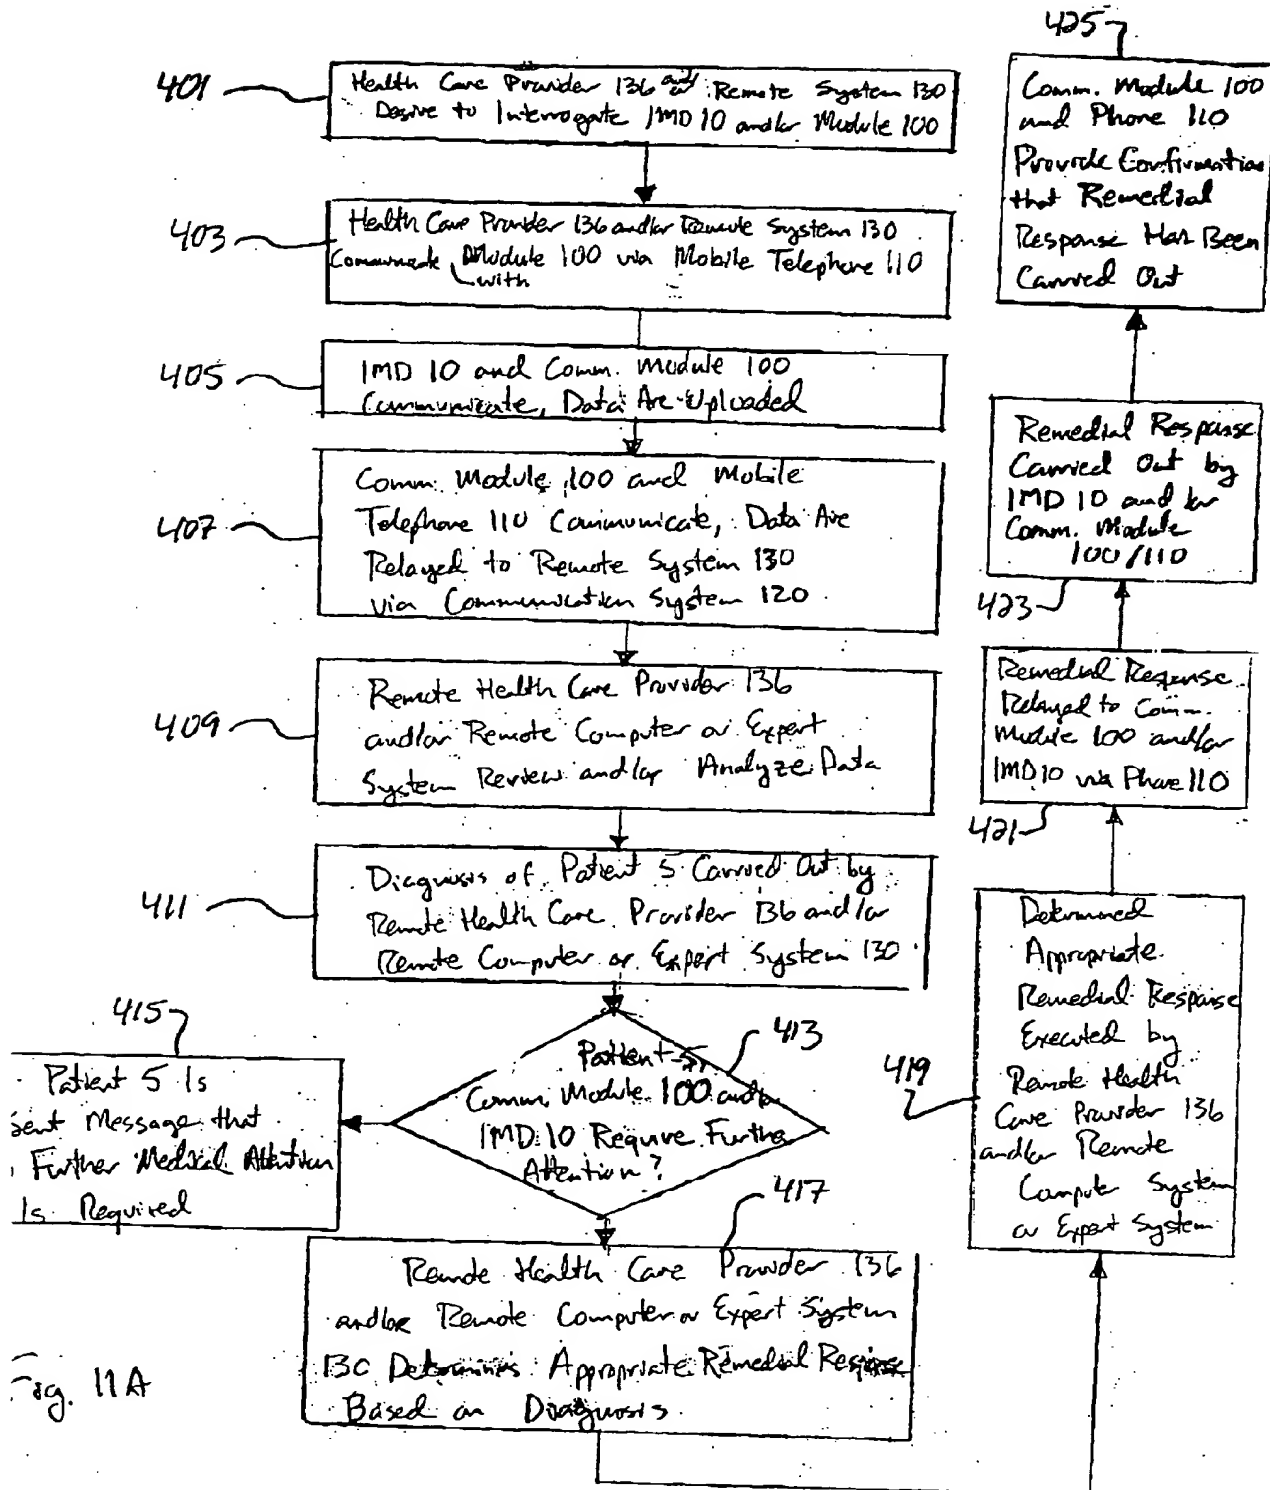 401
Health Care Provider 136 and/or Remote System 130
Desire to Interrogate IMD 10 and/or Module 100
403
Health Care Provider 136 and/or Remote System 130
Communicate with Module 100 via Mobile Telephone 110
405
IMD 10 and Comm. Module 100
Communicate, Data Are Uploaded
407
Comm. Module 100 and Mobile
Telephone 110 Communicate, Data Are
Relayed to Remote System 130
via Communication System 120
409
Remote Health Care Provider 136
and/or Remote Computer or Expert
System Review and/or Analyze Data
411
Diagnosis of Patient 5 Carried Out by
Remote Health Care Provider 136 and/or
Remote Computer or Expert System 130
413
Patient 5,
Comm. Module 100 and/or
IMD 10 Require Further
Attention?
415
Patient 5 Is
Sent Message that
Further Medical Attention
Is Required
417
Remote Health Care Provider 136
and/or Remote Computer or Expert System
130 Determines Appropriate Remedial Response
Based on Diagnosis
419
Determined
Appropriate
Remedial Response
Executed by
Remote Health
Care Provider 136
and/or Remote
Computer System
or Expert System
421
Remedial Response
Relayed to Comm.
Module 100 and/or
IMD 10 via Phone 110
423
Remedial Response
Carried Out by
IMD 10 and/or
Comm. Module
100/110
425
Comm. Module 100
and Phone 110
Provide Confirmation
that Remedial
Response Has Been
Carried Out
Fig. 11A